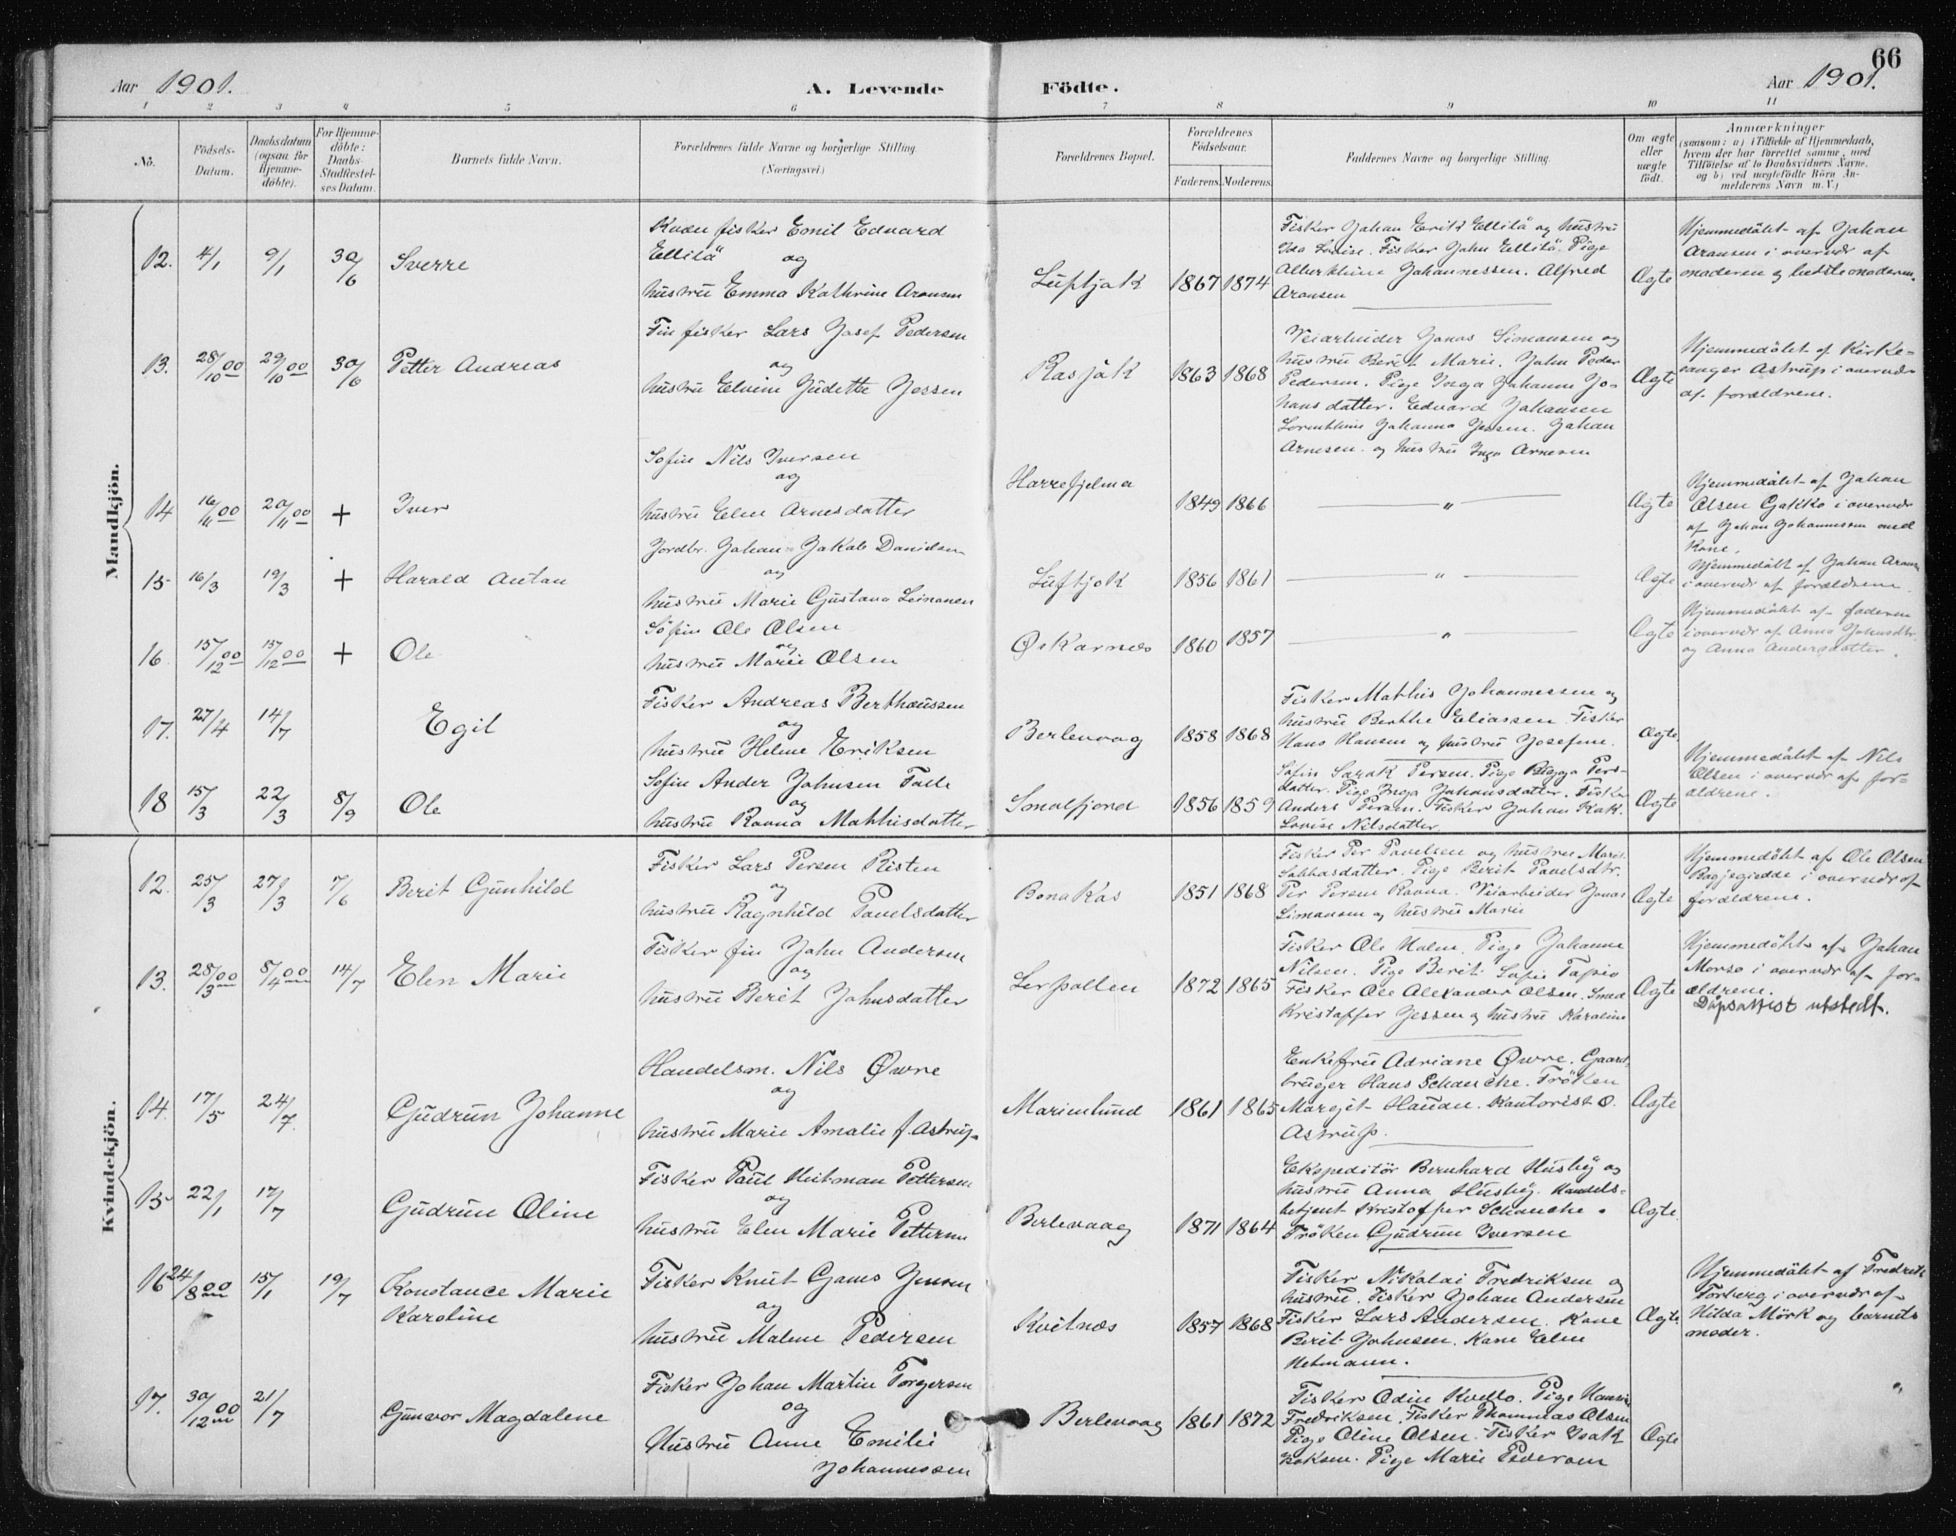 66
Aar 1901. A. Levende Födte. Aar 1901.
1 2 3 4 5 6 7 8 9 10 11
No. Födsels-Datum. Daabsdatum (ogsaa for Hjemmedöbte). For Hjemmedöbte: Daabs-Stadfæstelses Datum. Barnets fulde Navn. Forældrenes fulde Navne og borgerlige Stilling. (Næringsvei) Forældrenes Bopæl. Forældrenes Födselsaar. Faderens. Moderens. Faddernes Navne og borgerlige Stilling. Om ægte eller uægte födt. Anmærkninger (saasom: a) i Tilfælde af Hjemmedaab, hvem der har forrettet samme, med Tilföielse af to Daabsvidners Navne, og b) ved uægtefödte Börn Anmelderens Navn m. V.)
Mandkjön.
12. 4/1 9/1 30/6 Sverre
Kvæn fisker Emil Edvard
Ellilä og
hustru Emma Kathrine Aronsen
Luftjok 1867 1874
Fisker Johan Erik Ellilä og hustru
Ida Lovise. Fisker John Ellilä. Pige
Alberthine Johannessen. Alfred
Aronsen
Ægte
Hjemmedöbt af Johan
Aronsen i overvær af
moderen og bedstemoderen.
13. 28/10 00 29/10 00 30/6 Petter Andreas
Fin fisker Lars Josef Pedersen
og
hustru Elvine Judette Jessen
Rasjok 1863 1868
Veiarbeider Jonas Simonsen og
hustru Berit Marie. John Peder
Pedersen. Pige Inga Johanne Jo-
hansdatter. Edvard Johansen
Lorenthine Johanna Jessen. Johan
Arnesen og hustru Inga Arnesen
Ægte
Hjemmedöbt af Kirke-
sanger Astrup i overvær
af forældrene.
14 16/11 00 20/11 00 + Iver
Söfin Nils Iversen
og
hustru Elen Arnesdatter
Harrefjelma 1849 1866 — " — Ægte
Hjemmedöbt af Johan
Olsen Gakko i overvær
af Johan Johannessen med
Kone.
15 16/3 19/3 + Harald Anton
Jordbr. Johan Jakob Danielsen
og
hustru Marie Gustava Leinonen
Luftjok 1856 1861 — " — Ægte
Hjemmedöbt af Johan Aronsen
i overvær af forældrene.
16 15/12 00 15/12 00 + Ole
Söfin Ole Olsen
og
hustru Marie Olsen
Øskarnes 1860 1857 — " — Ægte
Hjemmedöbt af faderen
i overvær af Anna Johnsdtr.
og Anna Andersdatter.
17. 27/4 14/7 Egil
Fisker Andreas Berthaussen
og
hustru Helene Eriksen
Berlevaag 1858 1868
Fisker Mathis Johannessen og
hustru Berthe Eliassen. Fisker
Hans Hansen og hustru Josefine.
Ægte
18 15/3 22/3 8/9 Ole
Söfin Ander Johnsen Talle
og
hustru Ravna Mathisdatter
Smalfjord 1856 1859
Söfin Sarak Persen. Pige Pigga Pers-
datter. Pige Inga Johansdatter. Fisker
Anders Persen. Fisker Johan Kok.
Lovise Nilsdatter.
Ægte
Hjemmedöbt af Nils
Olsen i overvær af for-
ældrene.
Kvindekjön.
12. 25/3 27/3 7/6 Berit Gunhild
Fisker Lars Persen Risten
og
hustru Ragnhild Pavelsdatter
Bonakas 1851 1868
Fisker Per Pavelsen og hustru Marit
Sabbasdatter. Pige Berit Pavelsdtr.
Per Persen Ravna. Veiarbeider Jonas
Simonsen og hustru Marie
Ægte
Hjemmedöbt af Ole Olsen
i overvær af
forældrene.
13. 28/3 00 8/4 00 14/7 Elen Marie
Fisker fin John Andersen
og
hustru Berit Johnsdatter
Lerpollen 1872 1865
Fisker Ole Holm. Pige Johanne
Nilsen. Pige Berit Sofie Tapio
Fisker Ole Alexander Olsen. Smed
Kristoffer Jessen og hustru Karoline
Ægte
Hjemmedöbt af Johan
Morso i overvær af for-
ældrene.
Dåpsattest utstedt.
14. 17/5 24/7. Gudrun Johanne
Handelsm. Nils Øwre
og
hustru Marie Amalie f. Astrup.
Marienlund 1861 1865
Enkefru Adriane Øwre. Gaard-
bruger Hans Schanche. Fröken
Margit Hauan. Kontorist O.
Astrup.
Ægte
15 22/1 17/7 Gudrun Oline
Fisker Paul Heitman Pettersen
og
hustru Elen Marie Pettersen
Berlevaag 1871 1864
Ekspeditör Bernhard Husby og
hustru Anna Husby. Handels-
betjent Kristoffer Schanche.
Fröken Gudrun Iversen
Ægte.
16 24/8 00 15/1 19/7 Konstance Marie
Karoline
Fisker Knut Gams Jensen
og
hustru Malene Pedersen
Kvitnes 1857 1868
Fisker Nikolai Fredriksen og
hustru. Fisker Johan Andersen
Fisker Lars Andersen. Kone
Berit Johnsen. Kone Elen
Hetmann.
Ægte
Hjemmedöbt af Fredrik
Torberg i overvær af
Hilda Mörk og barnets
moder.
17. 30/12 00 21/7 Gunvor Magdalene
Fisker Johan Martin Torgersen
og
Hustru Anne Emilie
Johannessen
Berlevaag 1861 1872
Fisker Odin Kvello. Pige Hansine
Fredriksen. Fisker Thommas Olsen
Pige Oline Olsen. Fisker Isak
Isaksen. Pige Marie Pedersen
Ægte